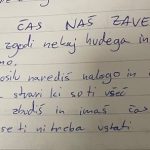 ČAS NAŠ ZAVE
zgodi nekaj hudega in
mo,
osil narediš nalogo in
stvari ki so ti všeč
zbudiš in imaš čas
se ti ni treba ustati